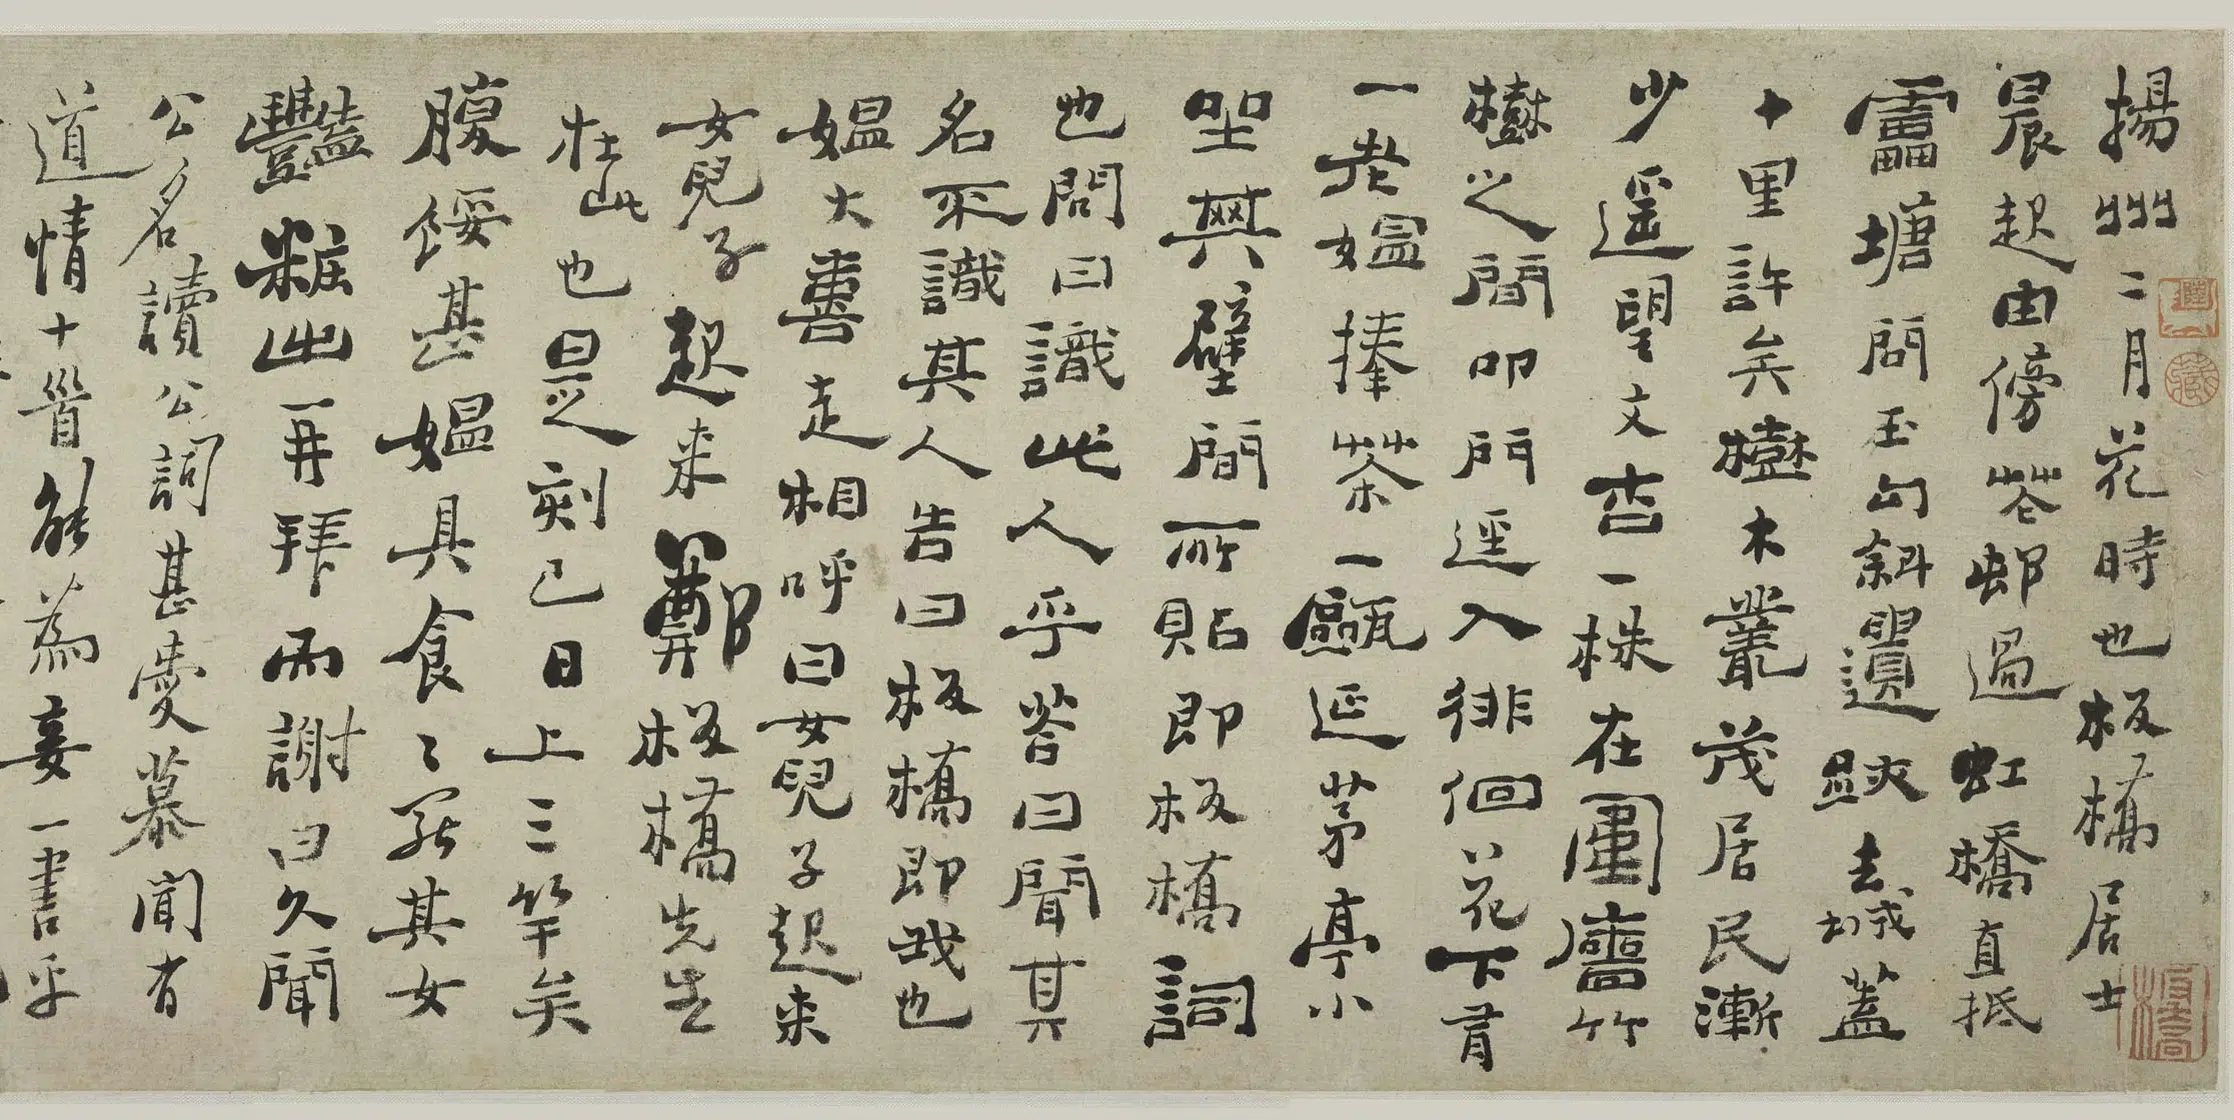 揚州二月花時也板橋居士
晨起由傍花邨過虹橋直抵
靁塘問玉勾斜遺跡去城蓋
十里許矣樹木叢茂居民漸
少遥望文杏一株在圍牆竹
樹之間叩門逕入徘徊花下有
一老媪捧茶一甌延茅亭小
坐其壁間所貼即板橋詞
也問曰識此人乎荅曰聞其
名不識其人告曰板橋即我也
媪大喜走相呼曰女兒子起来
女兒子起来鄭板橋先生
在此也是刻已日上三竿矣
腹餒甚媪具食〻罷其女
豔粧出再拜而謝曰久聞
公名讀公詞甚愛慕聞有
道情十首能為妾一書乎